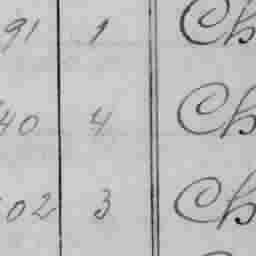 91 1 Ch
40 4 Ch
02 3 Ch